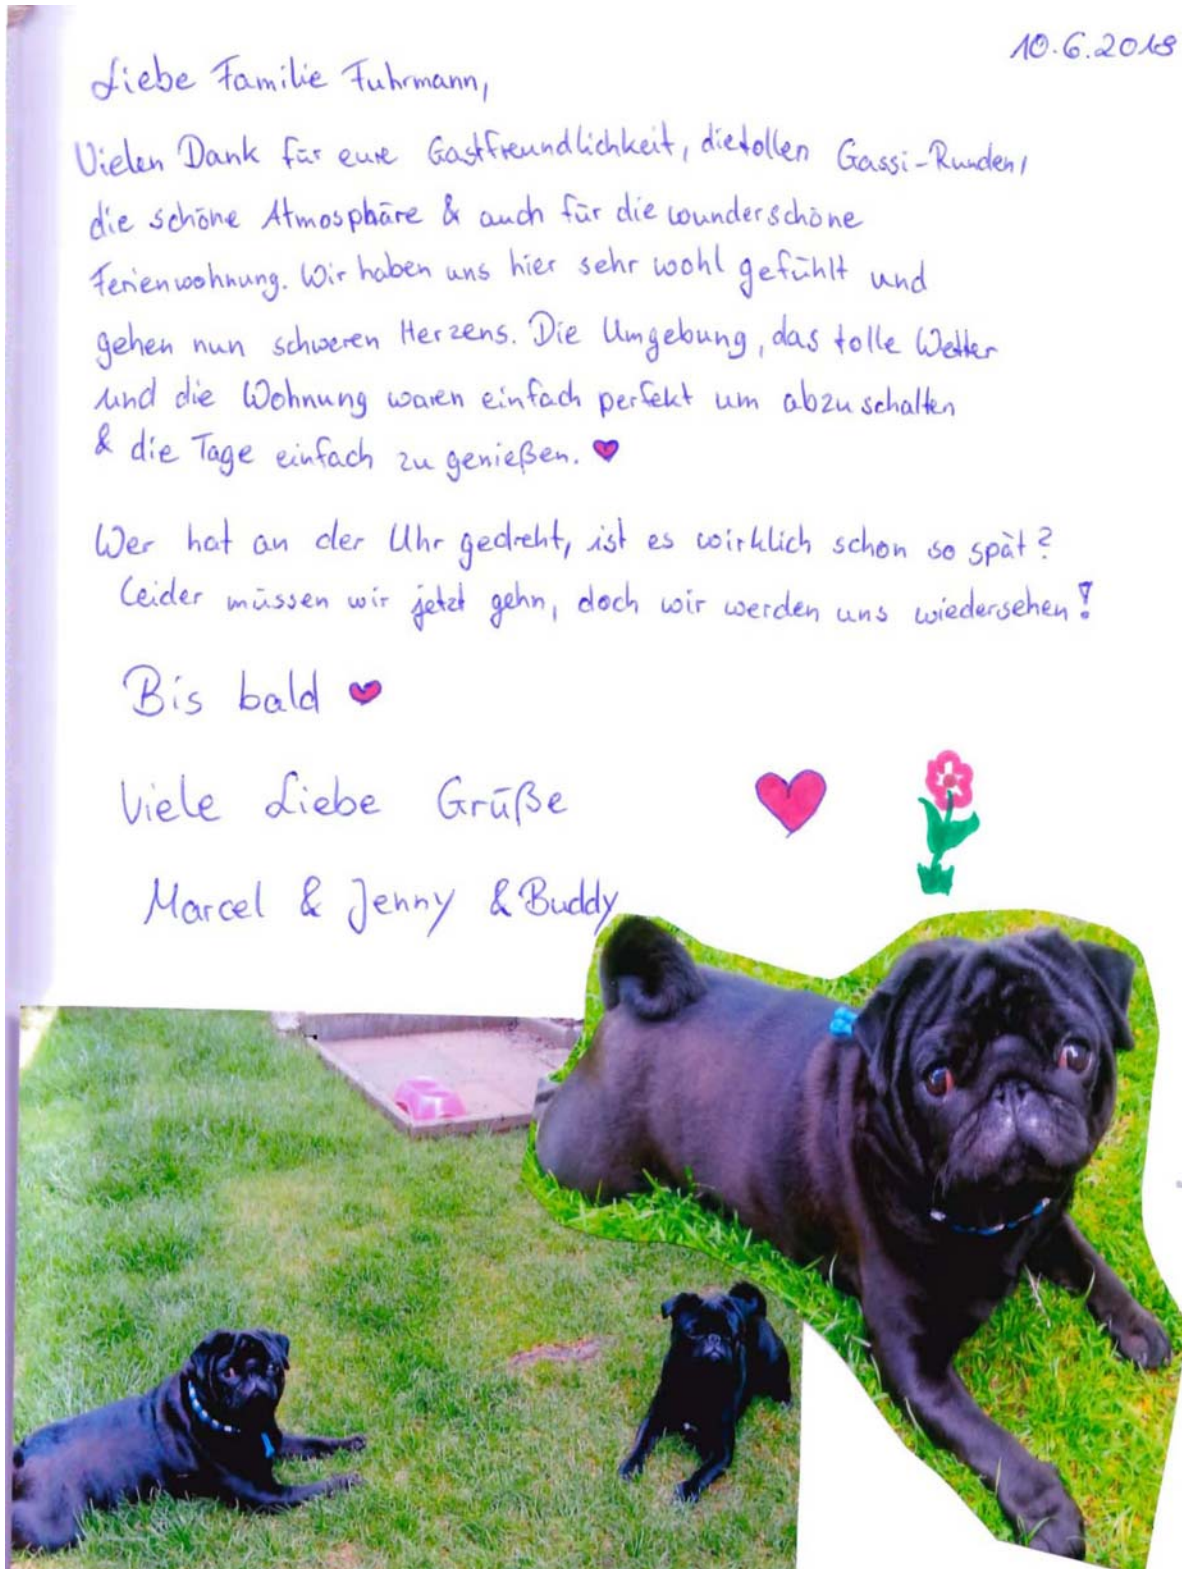 10.6.2018
Liebe Familie Fuhrmann,
Vielen Dank für eure Gastfreundlichkeit, die tollen Gassi-Runden,
die schöne Atmosphäre & auch für die wunderschöne
Ferienwohnung. Wir haben uns hier sehr wohl gefühlt und
gehen nun schweren Herzens. Die Umgebung, das tolle Wetter
und die Wohnung waren einfach perfekt um abzuschalten
& die Tage einfach zu genießen. ♥
Wer hat an der Uhr gedreht, ist es wirklich schon so spät?
Leider müssen wir jetzt gehn, doch wir werden uns wiedersehen!
Bis bald ♥
Viele Liebe Grüße
Marcel & Jenny & Buddy